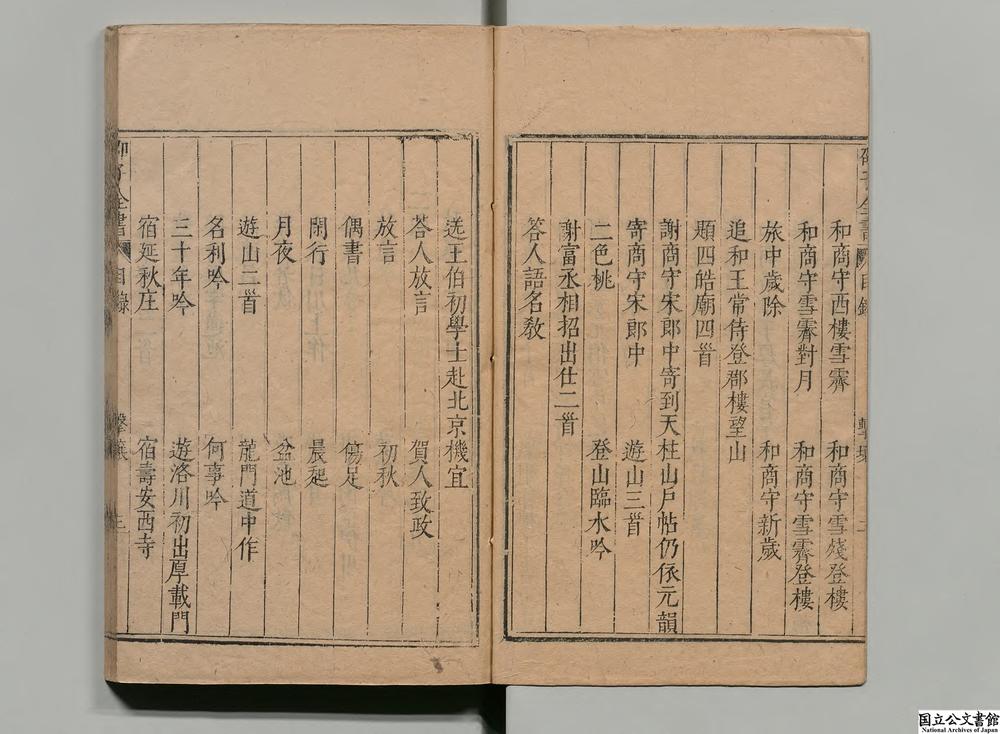 和商守西樓雪霽　和商守雪殘登樓
和商守雪霽對月　和商守雪霽登樓
旅中歲除　和商守新歲
追和王常侍登郡樓望山
題四皓廟四首
謝商守宋郎中寄到天柱山戶帖仍依元韻
寄商守宋郎中　遊山三首
二色桃　登山臨水吟
謝富丞相招出仕二首
答人語名敎
送王伯初學士赴北京機宜
答人放言　賀人致政
放言　初秋
偶書　傷足
閑行　晨起
月夜　盆池
遊山二首　龍門道中作
名利吟　何事吟
三十年吟　遊洛川初出厚載門
宿延秋庄　宿壽安西寺
全書　目錄　擊壤　三
国立公文書館
National Archives of Japan